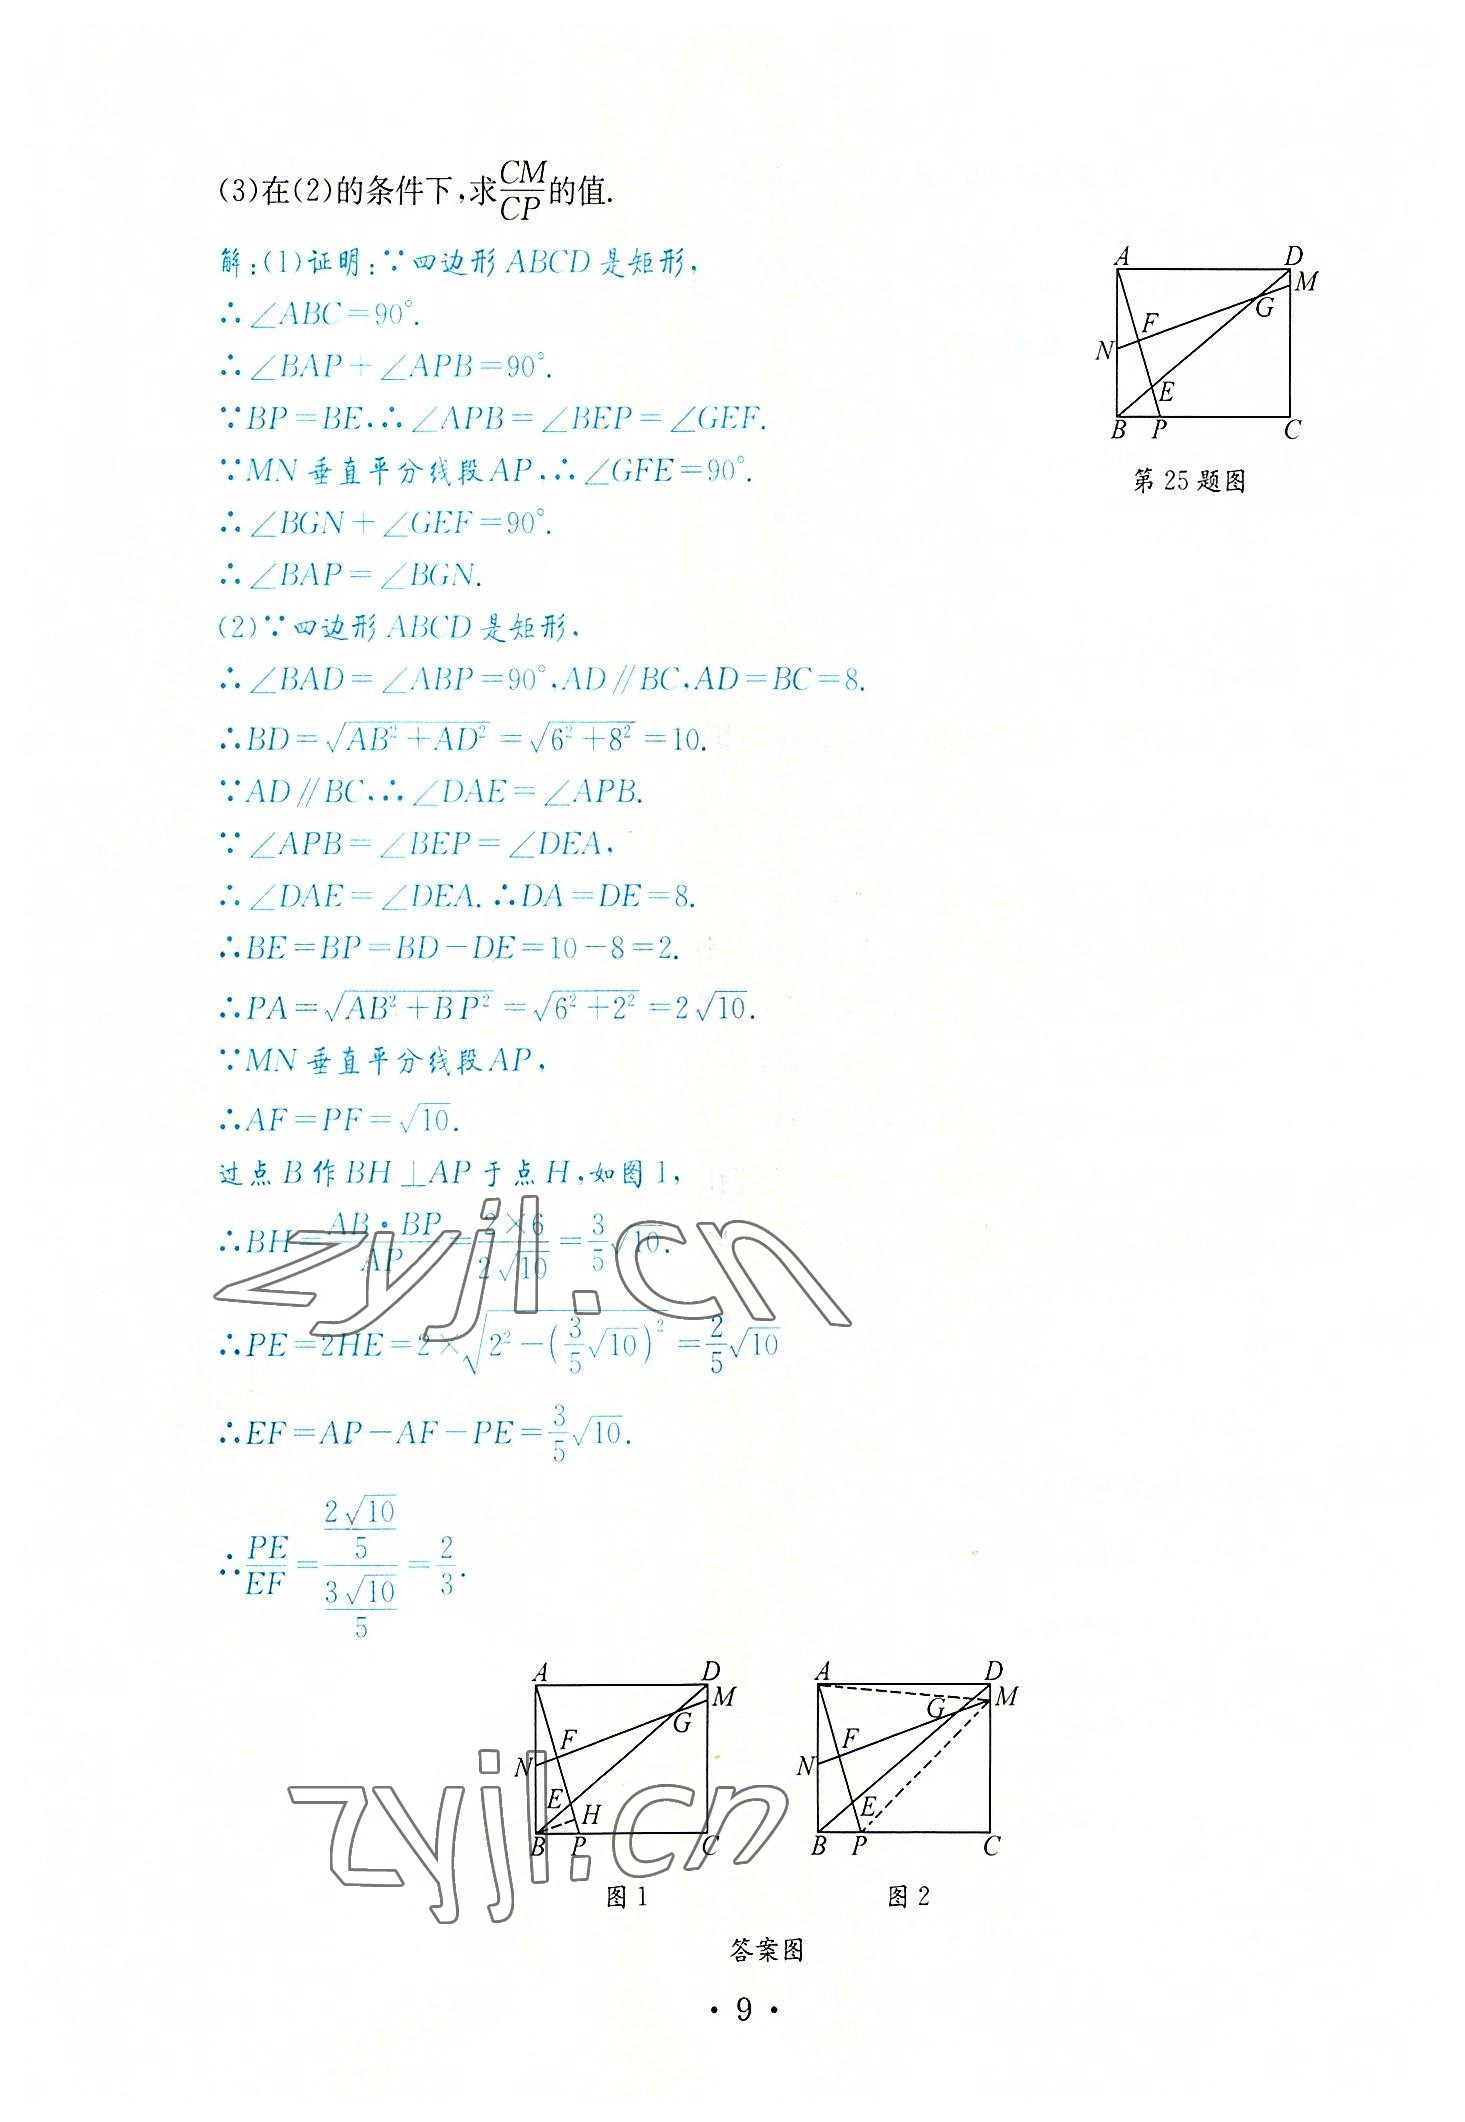 (3)在(2)的条件下,求CM/CP的值.
解:(1)证明:∵四边形ABCD是矩形,
∴∠ABC=90°.
∴∠BAP+∠APB=90°.
∵BP=BE,∴∠APB=∠BEP=∠GEF.
∵MN垂直平分线段AP,∴∠GFE=90°.
∴∠BGN+∠GEF=90°.
∴∠BAP=∠BGN.
A D
M
G
F
N
E
B P C
第25题图
(2)∵四边形ABCD是矩形,
∴∠BAD=∠ABP=90°,AD∥BC,AD=BC=8.
∴BD=√(AB²+AD²)=√(6²+8²)=10.
∵AD∥BC,∴∠DAE=∠APB.
∵∠APB=∠BEP=∠DEA,
∴∠DAE=∠DEA.∴DA=DE=8.
∴BE=BP=BD-DE=10-8=2.
∴PA=√(AB²+BP²)=√(6²+2²)=2√10.
∵MN垂直平分线段AP,
∴AF=PF=√10.
过点B作BH⊥AP于点H,如图1,
∴BH=AB·BP/AP=2×6/2√10=3/5√10.
∴PE=2HE=2×√(2²-(3/5√10)²)=2/5√10
∴EF=AP-AF-PE=3/5√10.
∴PE/EF=(2√10/5)/(3√10/5)=2/3.
A D
M
G
F
N
E
H
B P C
图1
A D
M
G
F
N
E
B P C
图2
答案图
·9·
zyjl.cn
zyjl.cn